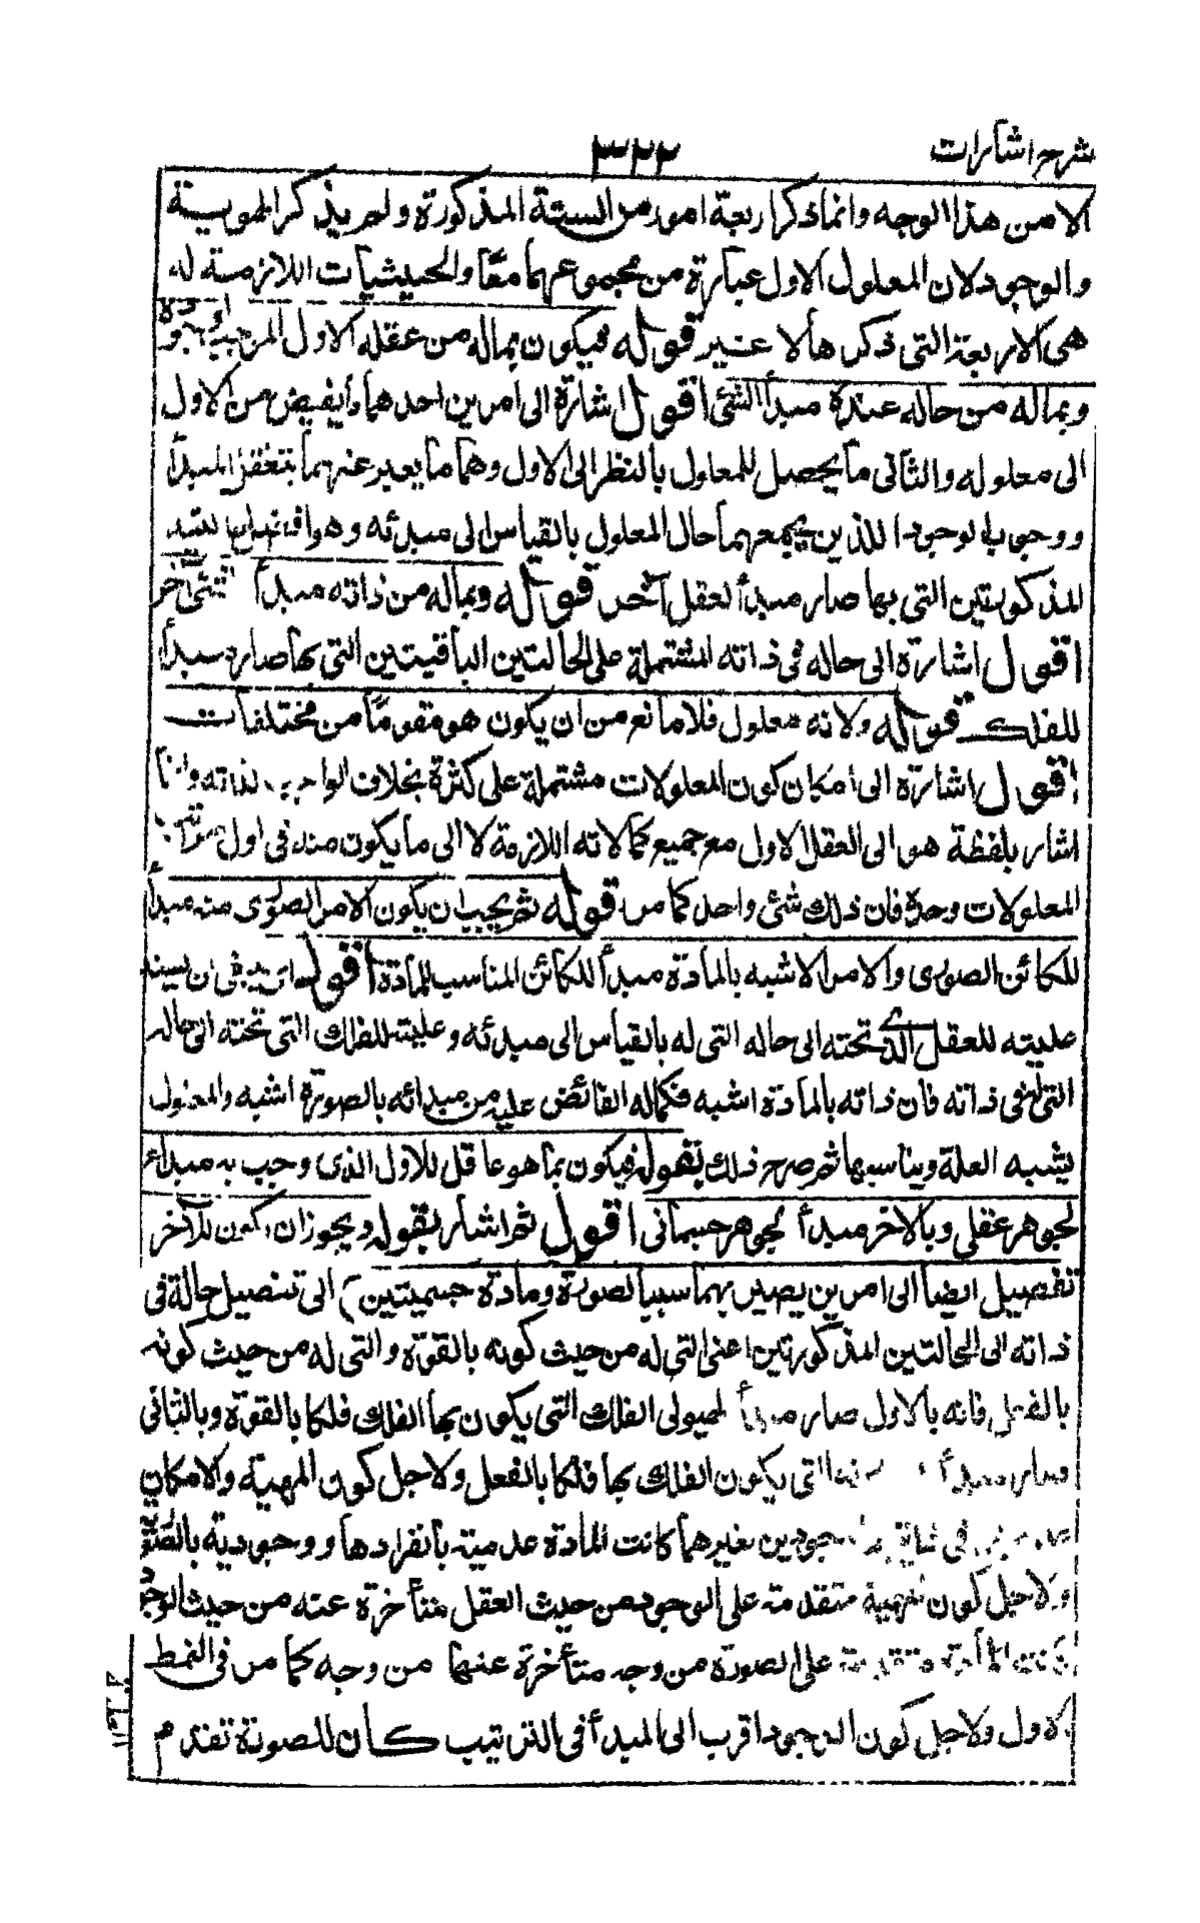 شرح اشارات
٣٢٢
الا من هذا الوجه وانما ذكر اربعة امور من الستة المذكورة ولم يذكر الهوية
والوجود لان المعلول الاول عبارة من مجموعهما معا والحيثيات اللازمة له
هى الاربعة التى ذكرها لا غير قوله فيكون بماله من عقله الاول الموجب لوجوده
وبماله من حاله عنده مبدأ الشئ اقول اشارة الى امرين احدهما ما يفيض من الاول
الى معلوله والثانى ما يحصل للمعلول بالنظر الى الاول وهما ما يعبر عنهما بتعقل المبدأ
ووجوب الوجود اللذين يجمعهما حال المعلول بالقياس الى مبدئه وهو
المذكورتين التى بها صار مبدأ لعقل آخر قوله وبماله من ذاته مبدأ لشئ آخر
اقول اشارة الى حاله فى ذاته المشتملة على الحالتين الباقيتين التى بها صار مبدأ
للفلك قوله ولانه معلول فلا مانع من ان يكون هو مقوما من مختلفات
اقول اشارة الى امكان كون المعلولات مشتملة على كثرة بخلاف الواجب لذاته وانما
اشار بلفظة هو الى العقل الاول مع جميع كمالاته اللازمة لا الى ما يكون منه فى اول مراتب
المعلولات وحدة فان ذلك شئ واحد كما مر قوله ثم يجب ان يكون الامر الصورى منه مبدأ
للكائن الصورى والامر الاشبه بالمادة مبدأ للكائن المناسب للمادة اقول اى ينبغى ان يسند
عليته للعقل الذى تحته الى حاله التى له بالقياس الى مبدئه وعليته للفلك التى تحته الى حاله
التى له فى ذاته فان ذاته بالمادة اشبه فكماله الفائض عليه من مبدائه بالصورة اشبه والمعلول
يشبه العلة ويناسبها ثم صرح ذلك بقوله فيكون بما هو عاقل للاول الذى وجب به مبدأ
لجوهر عقلى وبالاخر مبدأ لجوهر جسمانى اقول ثم اشار بقوله ويجوز ان يكون للآخر
تفصيل ايضا الى امرين يصير بهما سببا لصورة ومادة جسميتين الى تفصيل حاله فى
ذاته الى الحالتين المذكورتين اعنى التى له من حيث كونه بالقوة والتى له من حيث كونه
بالفعل فانه بالاول صار مبدأ لهيولى الفلك التى يكون بها الفلك فلكا بالقوة وبالثانى
صار مبدأ التى يكون الفلك بها فلكا بالفعل ولاجل كون المهية والامكان
فى بغيرهما كانت المادة عدمية بانفرادها ووجودية بالصورة
ولاجل كون المهية متقدمة على الوجود من حيث العقل متأخرة عنه من حيث الوجود
كانت المادة متقدمة على الصورة من وجه متأخرة عنها من وجه كما مر فى النمط
الاول ولاجل كون الوجود اقرب الى المبدأ فى الترتيب كان للصورة تقدم